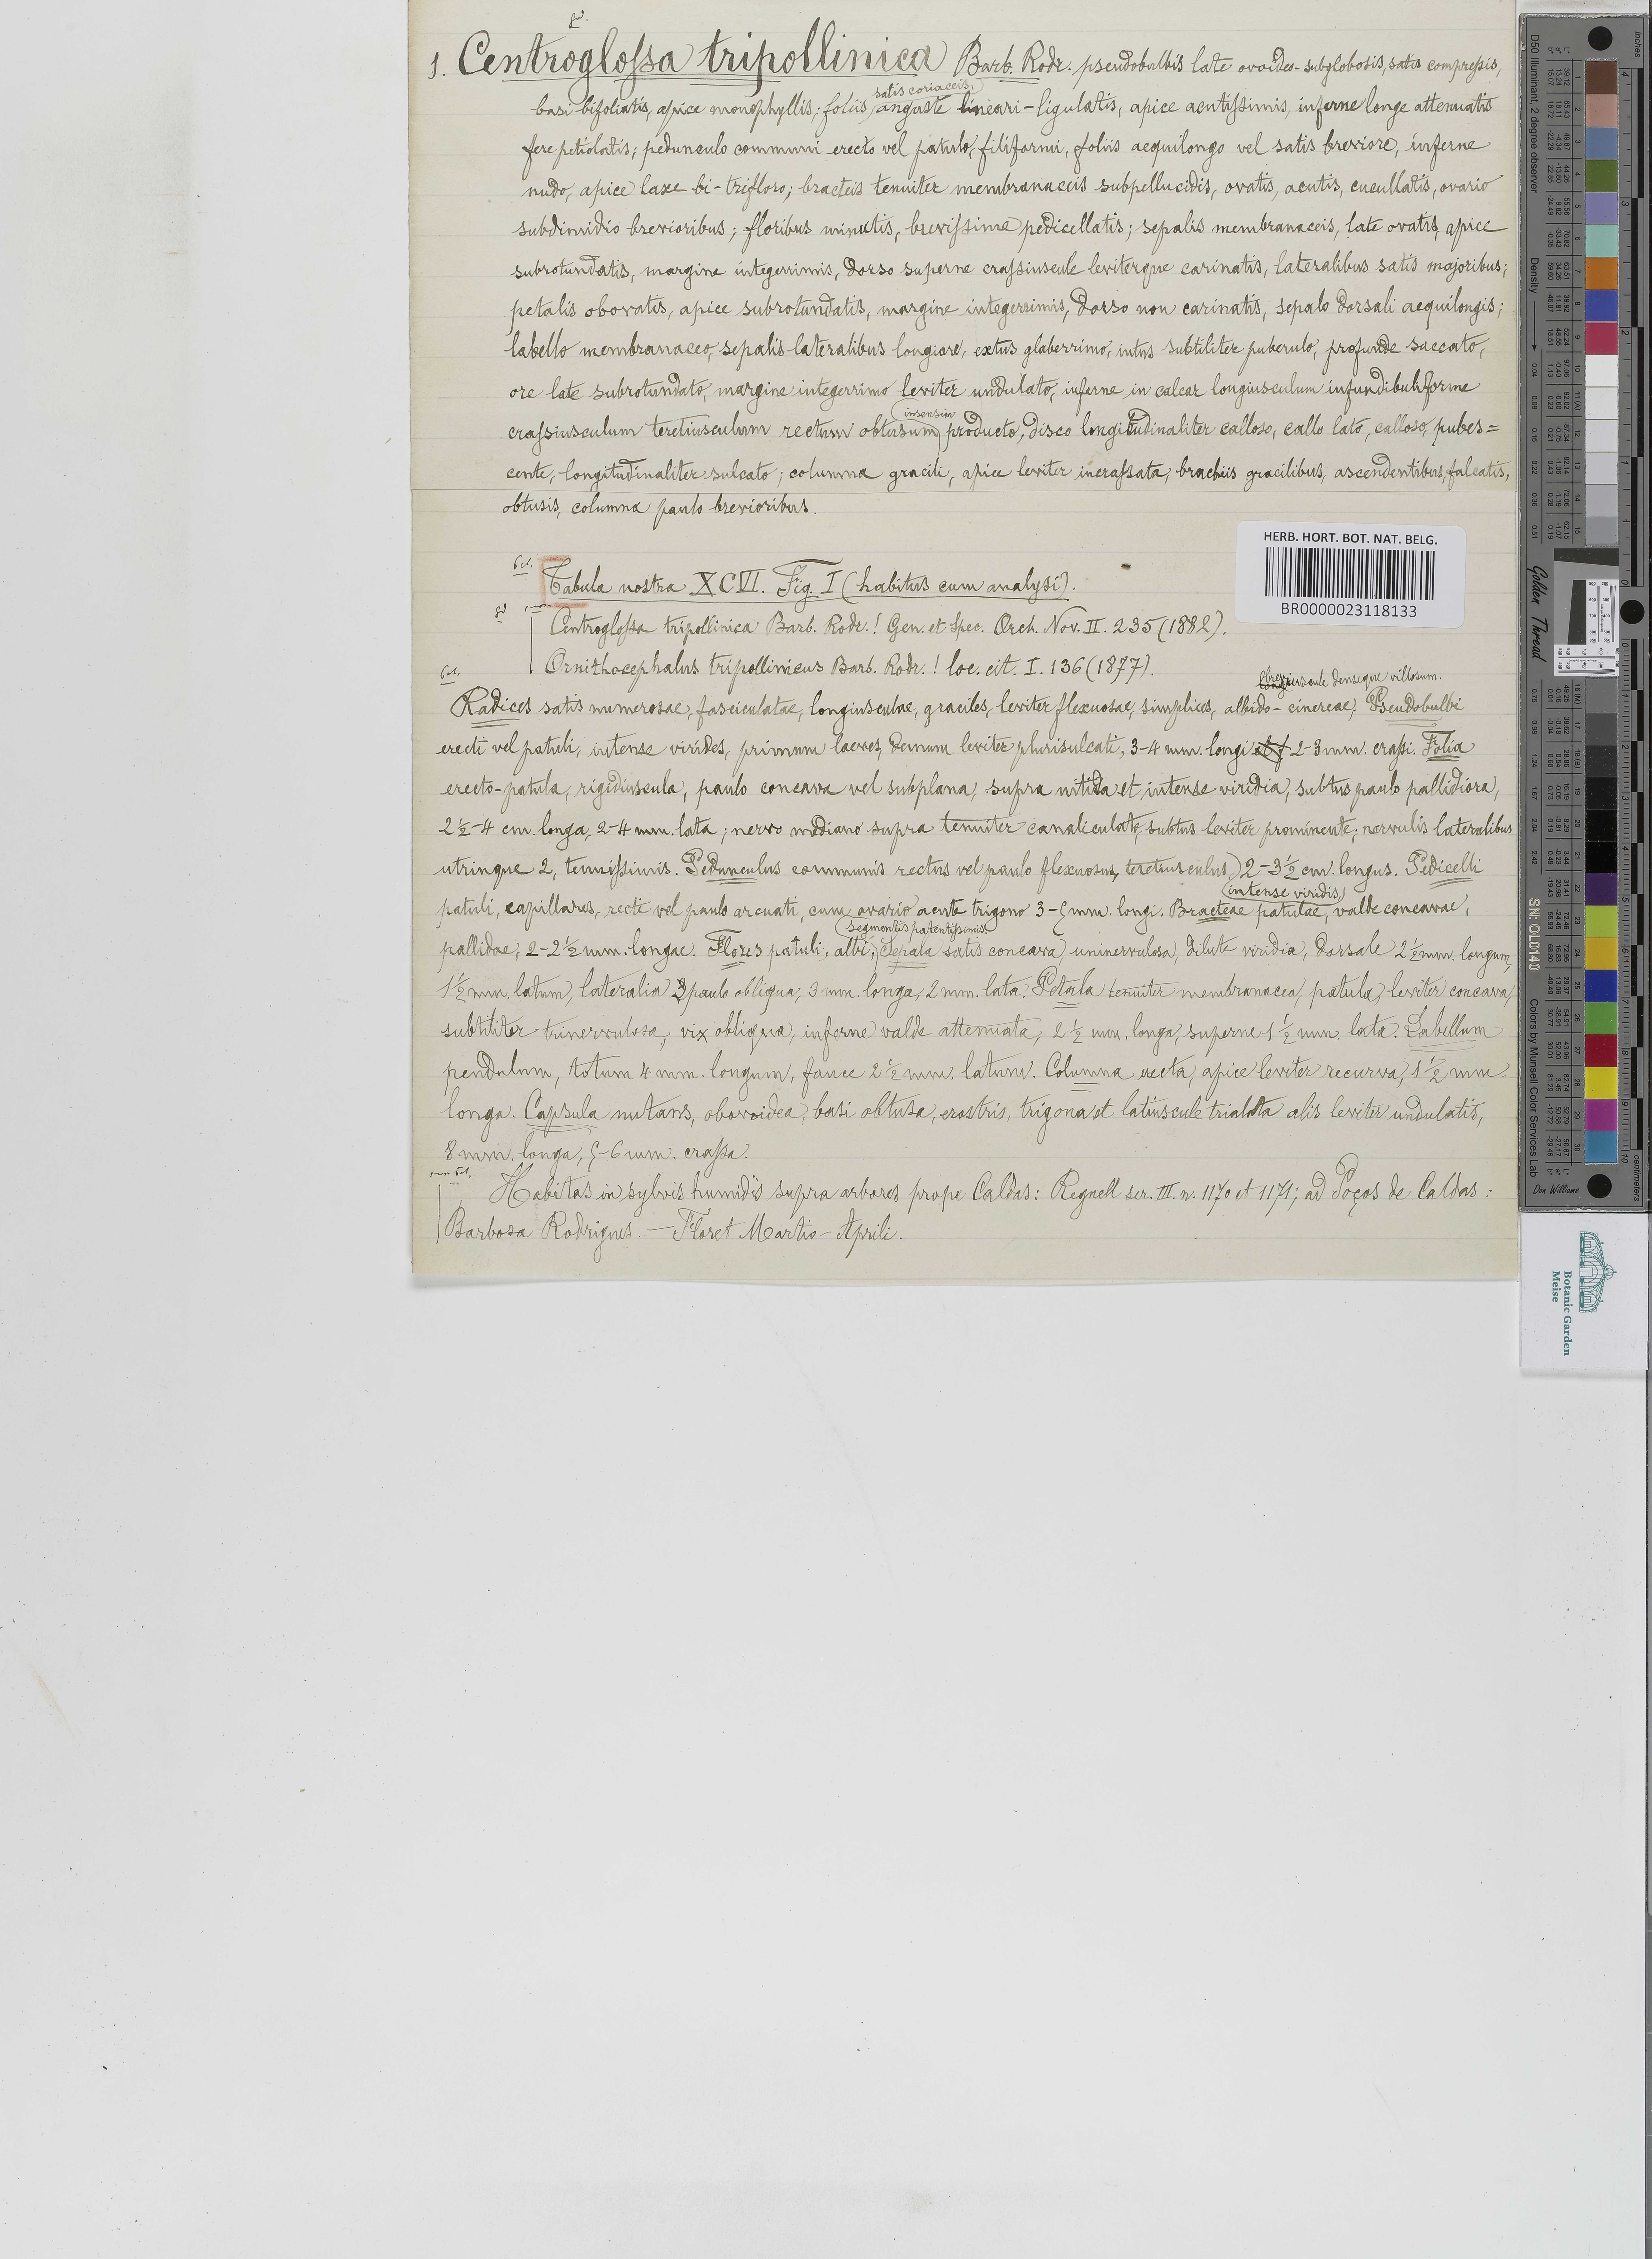 1. Centroglossa tripollinica Barb. Rodr. pseudobulbis late ovoideo-subglobosis, satis compressis,
satis coriaceis,
basi bifoliatis, apice monophyllis; foliis anguste lineari-ligulatis, apice acutissimis, inferne longe attenuatis
fere petiolatis; pedunculo communi erecto vel patulo, filiformi, foliis aequilongo vel satis breviore, inferne
nudo, apice laxe bi-trifloro; bracteis tenuiter membranaceis subpellucidis, ovatis, acutis, cucullatis, ovario
subdimidio brevioribus; floribus minutis, brevissime pedicellatis; sepalis membranaceis, late ovatis, apice
subrotundatis, margine integerrimis, dorso superne crassiuscule leviterque carinatis, lateralibus satis majoribus;
petalis obovatis, apice subrotundatis, margine integerrimis, dorso non carinatis, sepalo dorsali aequilongis;
labello membranaceo, sepalis lateralibus longiore, extus glaberrimo, intus subtiliter puberulo, profunde saccato,
ore late subrotundato, margine integerrimo leviter undulato, inferne in calcar longiusculum infundibuliforme
insensim
crassiusculum teretiusculum rectum obtusum producto, disco longitudinaliter calloso, callo lato, calloso, pubes=
cente, longitudinaliter sulcato; columna gracili, apice leviter incrassata, brachiis gracilibus, ascendentibus, falcatis,
obtusis, columna paulo brevioribus.
HERB. HORT. BOT. NAT. BELG.
BR0000023118133
Tabula nostra XCVI. Fig. I (habitus cum analysi).
Centroglossa tripollinica Barb. Rodr.! Gen. et Spec. Orch. Nov. II. 235 (1882).
Ornithocephalus tripollinicus Barb. Rodr.! loc. cit. I. 136 (1877).
breviuscule denseque villosum.
Radices satis numerosae, fasciculatae, longiusculae, graciles, leviter flexuosae, simplices, albido-cinereae, Pseudobulbi
erecti vel patuli, intense virides, primum laeves, demum leviter plurisulcati, 3-4 mm. longi et 2-3 mm. crassi. Folia
erecto-patula, rigidiuscula, paulo concava vel subplana, supra nitida et intense viridia, subtus paulo pallidiora,
2½-4 cm. longa, 2-4 mm. lata; nervo mediano supra tenuiter canaliculato, subtus leviter prominente; nervulis lateralibus
utrinque 2, tenuissimis. Pedunculus communis rectus vel paulo flexuosus, teretiusculus, 2-3½ cm. longus. Pedicelli
intense viridis,
patuli, capillares, recti vel paulo arcuati, cum ovario acute trigono 3-5 mm. longi. Bracteae patulae, valde concavae,
segmentis patentissimis.
pallidae, 2-2½ mm. longae. Flores patuli, albi, Sepala satis concava, uninervulosa, dilute viridia, dorsale 2½ mm. longum,
1½ mm. latum, lateralia paulo obliqua, 3 mm. longa, 2 mm. lata. Petala tenuiter membranacea, patula, leviter concava,
subtiliter trinervulosa, vix obliqua, inferne valde attenuata, 2½ mm. longa, superne 1½ mm. lata. Labellum
pendulum, totum 4 mm. longum, fauce 2½ mm. latum. Columna erecta, apice leviter recurva, 1½ mm.
longa. Capsula nutans, obovoidea, basi obtusa, erostris, trigona et latiuscule trialata alis leviter undulatis,
8 mm. longa, 5-6 mm. crassa.
Habitas in sylvis humidis supra arbores prope Caldas: Regnell ser. III n. 1170 et 1171; ad Poços de Caldas:
Barbosa Rodrigues. — Floret Martio-Aprili.
D50 Illuminant, 2 degree observer
Density
Golden Thread
SN: OL0140
Colors by Munsell Color Services Lab
inches
centimeters
Don Williams
Botanic Garden
Meise